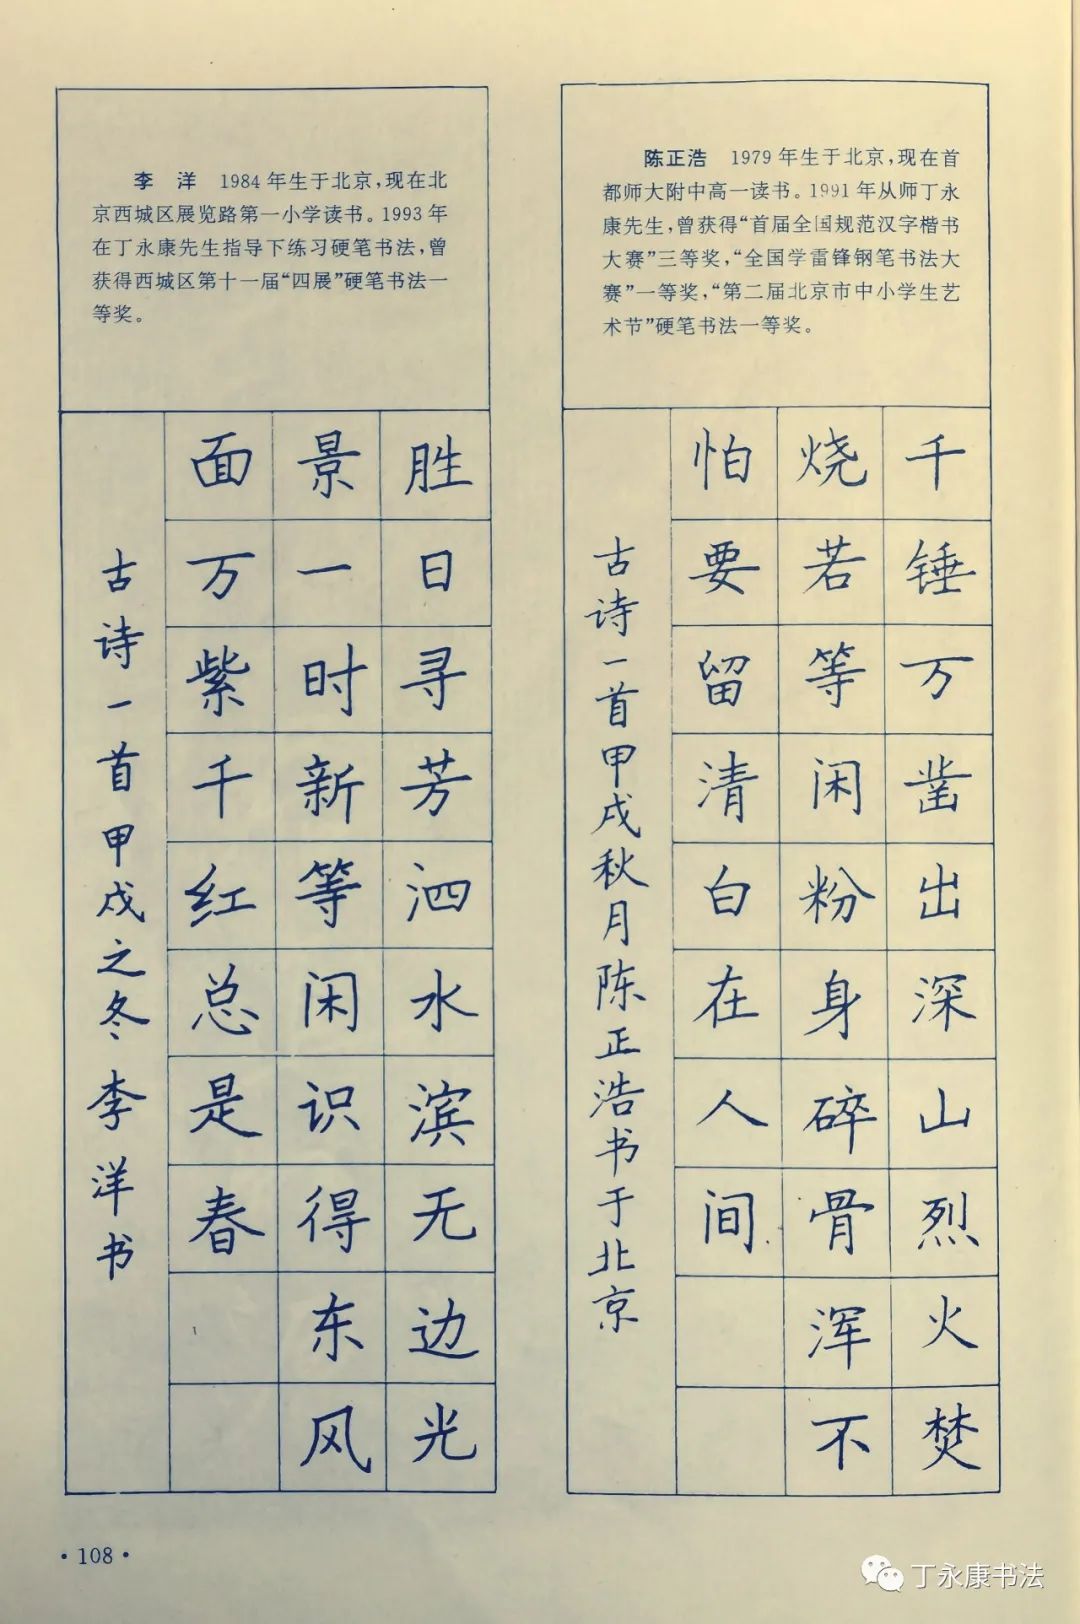 李 洋 1984年生于北京,现在北
京西城区展览路第一小学读书。1993年
在丁永康先生指导下练习硬笔书法,曾
获得西城区第十一届“四展”硬笔书法一
等奖。
胜日寻芳泗水滨无边光
景一时新等闲识得东风
面万紫千红总是春
古诗一首甲戌之冬李洋书
陈正浩 1979年生于北京,现在首
都师大附中高一读书。1991年从师丁永
康先生,曾获得“首届全国规范汉字楷书
大赛”三等奖,“全国学雷锋钢笔书法大
赛”一等奖,“第二届北京市中小学生艺
术节”硬笔书法一等奖。
千锤万凿出深山烈火焚
烧若等闲粉身碎骨浑不
怕要留清白在人间
古诗一首甲戌秋月陈正浩书于北京
·108·
丁永康书法